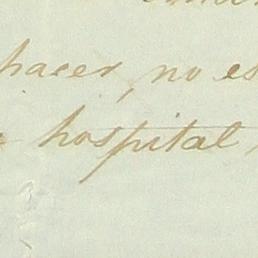 hacer, no es
hospital,